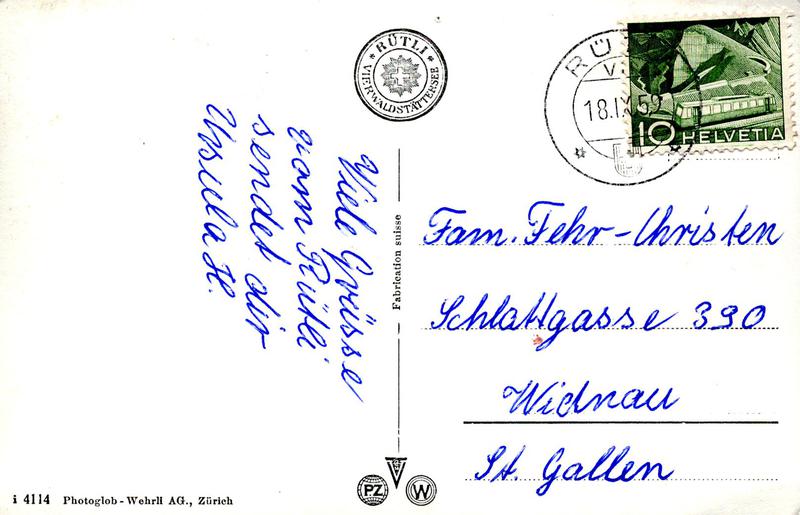 RÜTLI
VIERWALDSTÄTTERSEE
18.IX.52
10 HELVETIA
Viele Grüsse
vom Rütli
sendet dir
Ursula H.
Fabrication suisse
Fam. Fehr-Christen
Schlattgasse 390
Widnau
St. Gallen
PZ W
i 4114 Photoglob-Wehrli AG., Zürich